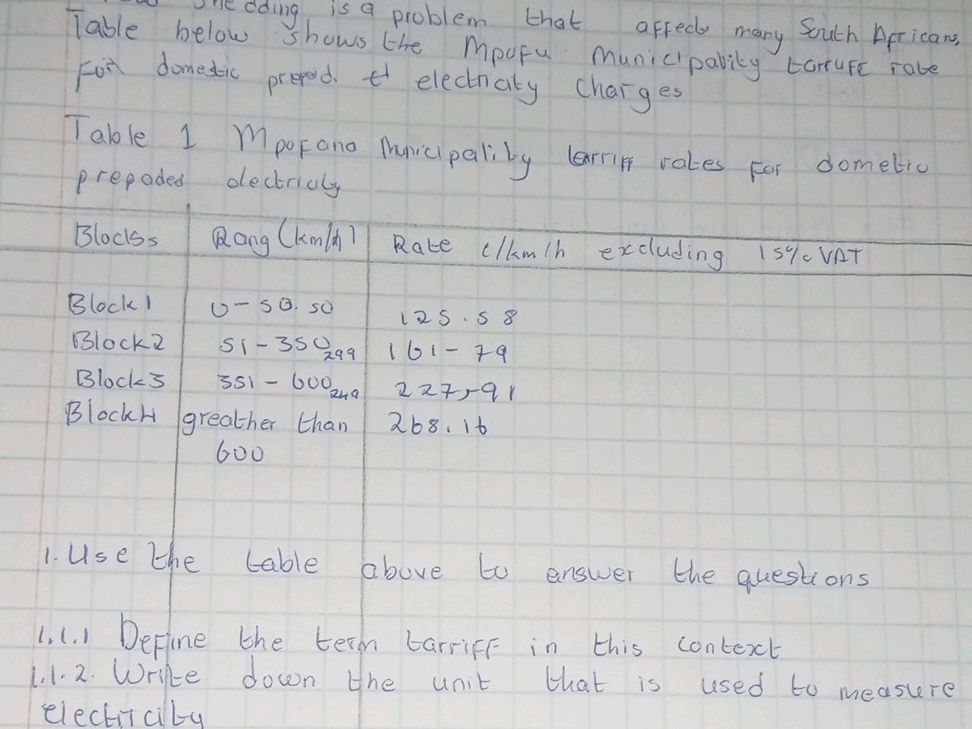 is a problem that affects many South Africans,
Table below shows the Mpofu Municipality tarruff rate
For domestic preped. electricity Charges
Table 1 Mpofana Municipality tarriff rates for dometic
prepaded electricity
Blocks Rang (km/h) Rate c/km/h excluding 15% VAT
Block 1 0-50.50 125.58
Block 2 51-350 299 161-79
Block 3 351-600 249 227,91
Block 4 greather than 268.16
600
1. Use the table above to answer the questions
1.1.1 Define the term tarriff in this context
1.1.2. Write down the unit that is used to measure
electricity